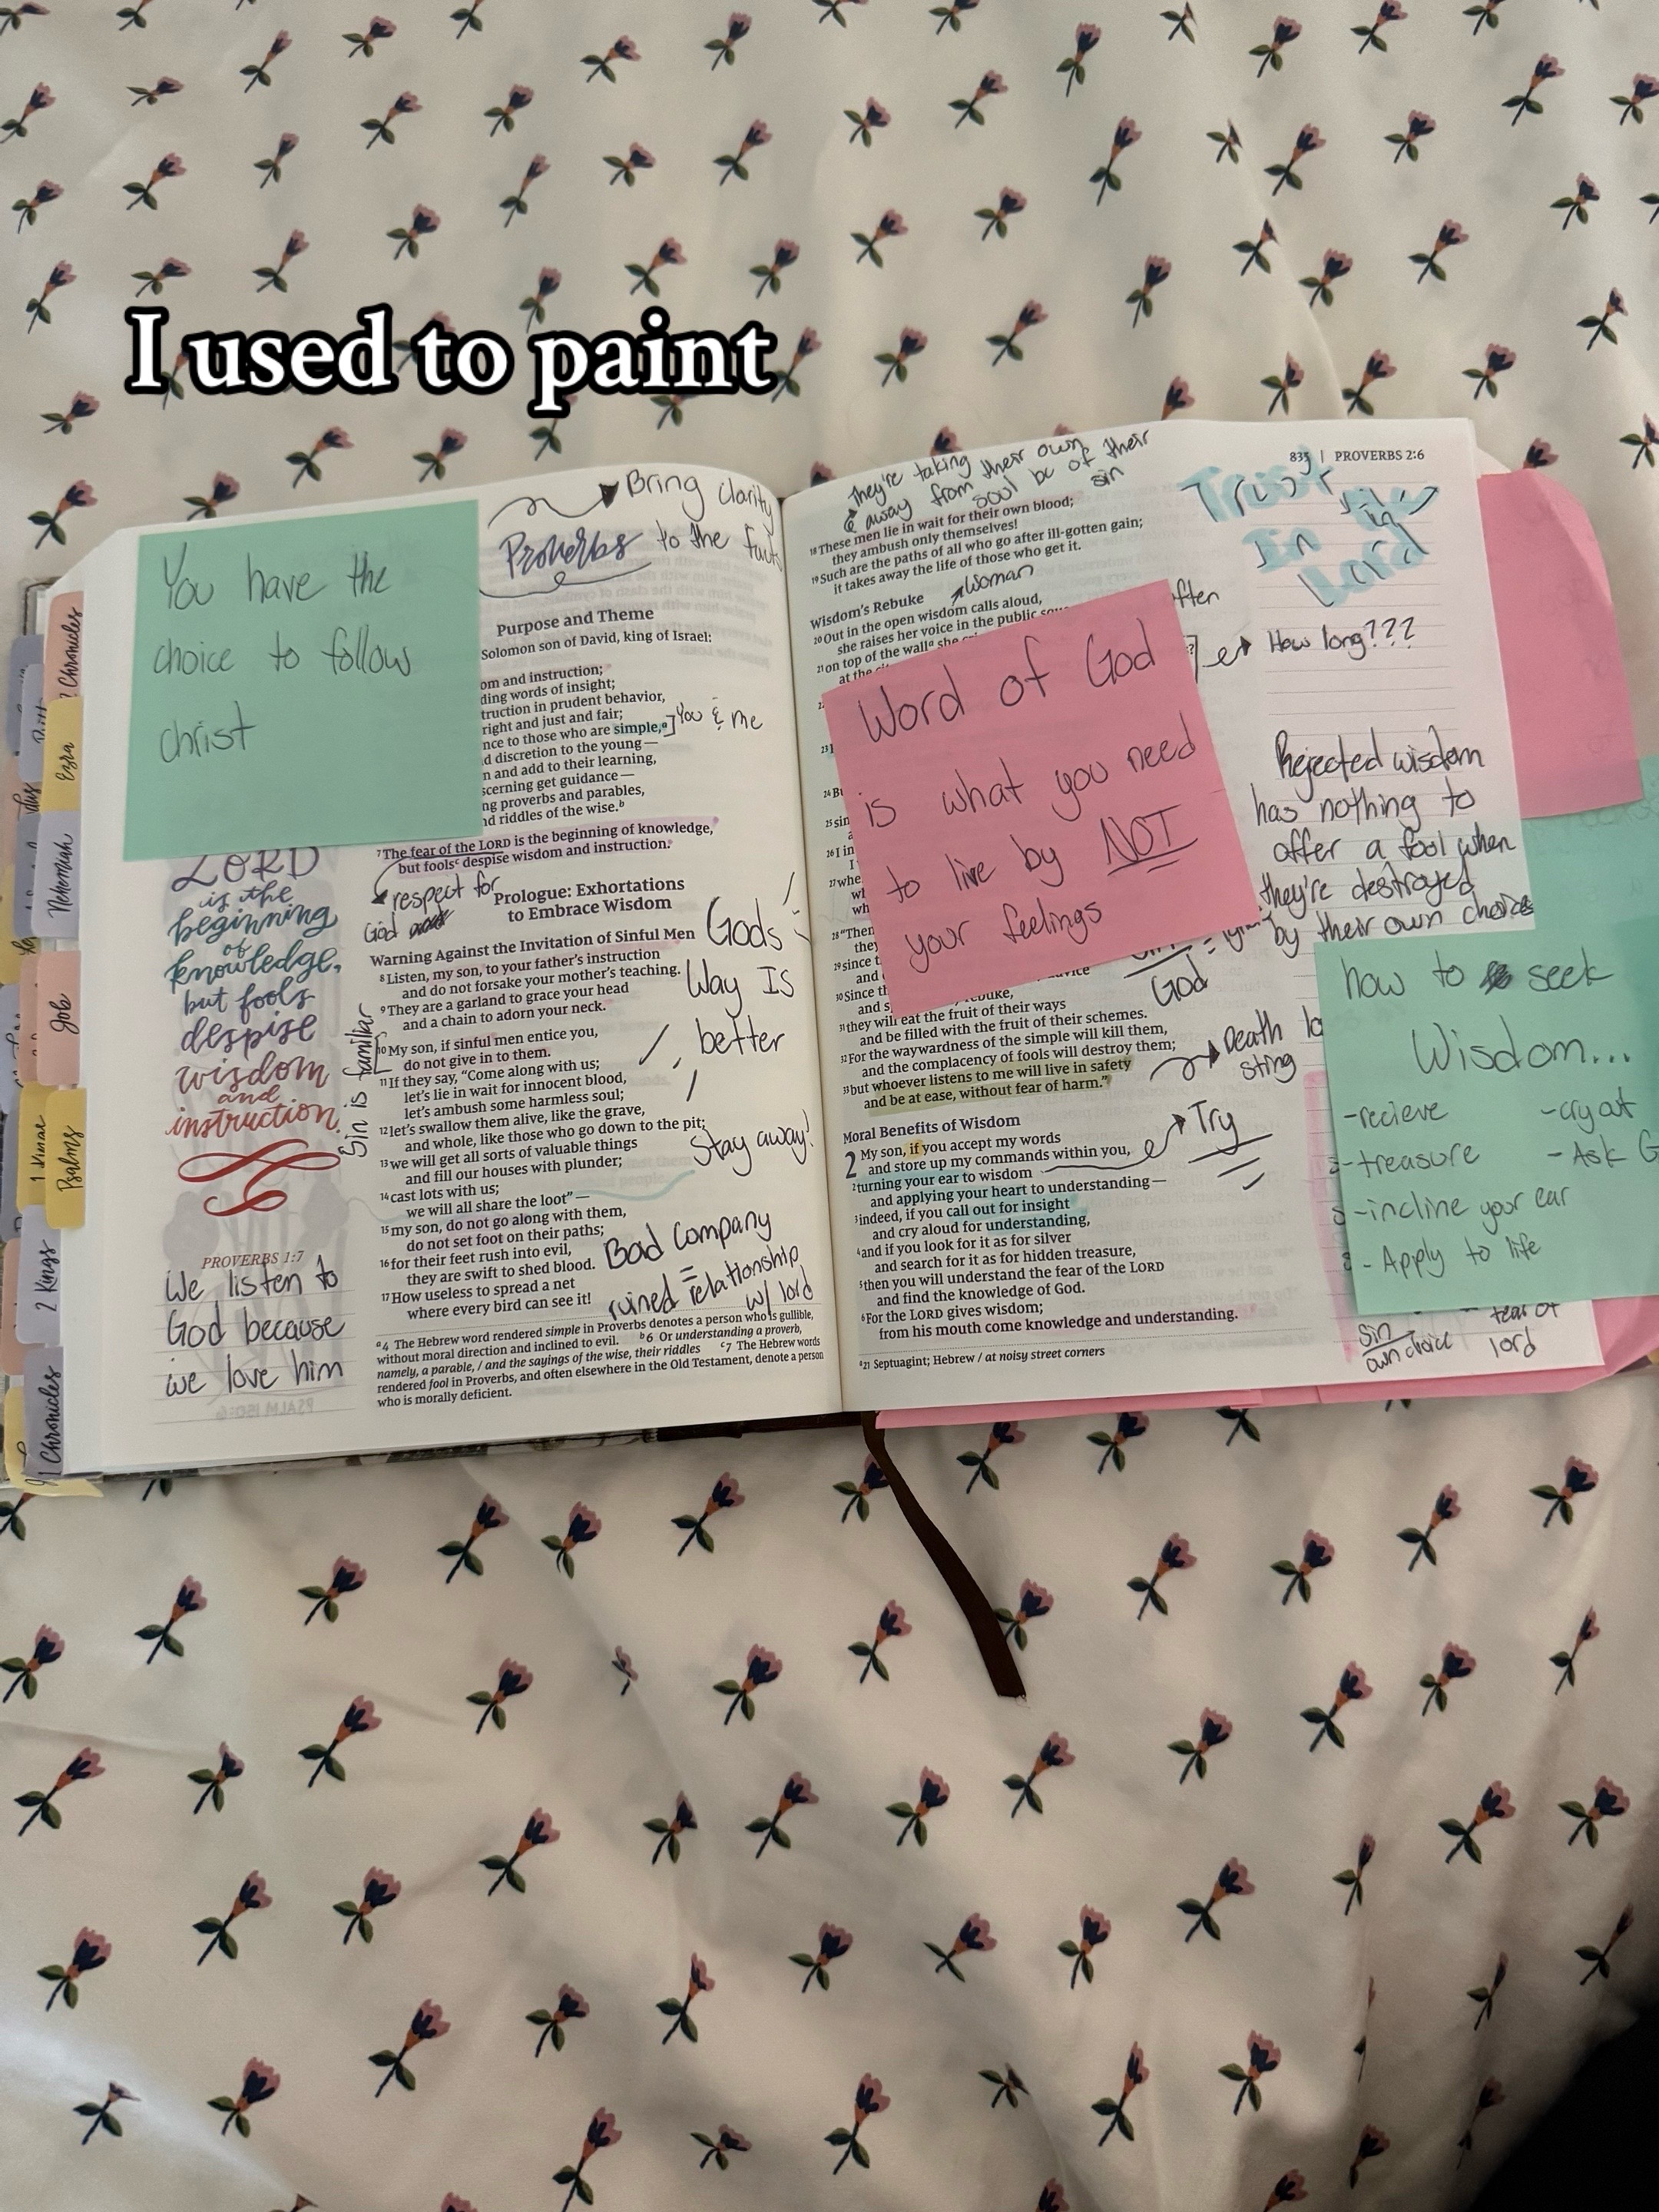 I used to paint
You have the
choice to follow
christ
Bring clarity
Proverbs to the
Purpose and Theme
Solomon son of David, king of Israel:
and instruction;
words of insight;
in prudent behavior,
right and just and fair;
to those who are simple,ᵃ
You & me
discretion to the young—
and add to their learning,
get guidance—
proverbs and parables,
and riddles of the wise.ᵇ
7 The fear of the LORD is the beginning of knowledge,
but foolsᶜ despise wisdom and instruction.
respect for
God
LORD
is the
beginning
of
knowledge,
but fools
despise
wisdom
and
instruction.
PROVERBS 1:7
We listen to
God because
we love him
Prologue: Exhortations
to Embrace Wisdom
Warning Against the Invitation of Sinful Men
8 Listen, my son, to your father's instruction
and do not forsake your mother's teaching.
9 They are a garland to grace your head
and a chain to adorn your neck.
10 My son, if sinful men entice you,
do not give in to them.
11 If they say, "Come along with us;
let's lie in wait for innocent blood,
let's ambush some harmless soul;
12 let's swallow them alive, like the grave,
and whole, like those who go down to the pit;
13 we will get all sorts of valuable things
and fill our houses with plunder;
14 cast lots with us;
we will all share the loot"—
15 my son, do not go along with them,
do not set foot on their paths;
16 for their feet rush into evil,
they are swift to shed blood.
17 How useless to spread a net
where every bird can see it!
Sin is familiar
Gods
Way Is
better
Stay away!
Bad Company
=
ruined relationship
w/ lord
ᵃ4 The Hebrew word rendered simple in Proverbs denotes a person who is gullible,
without moral direction and inclined to evil. ᵇ6 Or understanding a proverb,
namely, a parable, / and the sayings of the wise, their riddles ᶜ7 The Hebrew words
rendered fool in Proverbs, and often elsewhere in the Old Testament, denote a person
who is morally deficient.
Chronicles
Ezra
Nehemiah
Job
1 Kings
Psalms
2 Kings
1 Chronicles
835 | PROVERBS 2:6
They're taking
away from their own
soul bc of their
sin
18 These men lie in wait for their own blood;
they ambush only themselves!
19 Such are the paths of all who go after ill-gotten gain;
it takes away the life of those who get it.
Trust
In
Lord
Wisdom's Rebuke
Woman
20 Out in the open wisdom calls aloud,
she raises her voice in the public
21 on top of the wallᵃ she
at the
How long???
Word of God
is what you need
to live by NOT
your feelings
Rejected wisdom
has nothing to
offer a fool when
they're destroyed
by their own choices
God
31 they will eat the fruit of their ways
and be filled with the fruit of their schemes.
32 For the waywardness of the simple will kill them,
and the complacency of fools will destroy them;
33 but whoever listens to me will live in safety
and be at ease, without fear of harm."
Death
sting
Moral Benefits of Wisdom
2 My son, if you accept my words
and store up my commands within you,
2 turning your ear to wisdom
and applying your heart to understanding—
3 indeed, if you call out for insight
and cry aloud for understanding,
4 and if you look for it as for silver
and search for it as for hidden treasure,
5 then you will understand the fear of the LORD
and find the knowledge of God.
6 For the LORD gives wisdom;
from his mouth come knowledge and understanding.
Try
ᵃ21 Septuagint; Hebrew / at noisy street corners
how to seek
Wisdom...
-recieve -cry out
-treasure -Ask G
-incline your ear
-Apply to life
Sin
own choice
fear of
lord